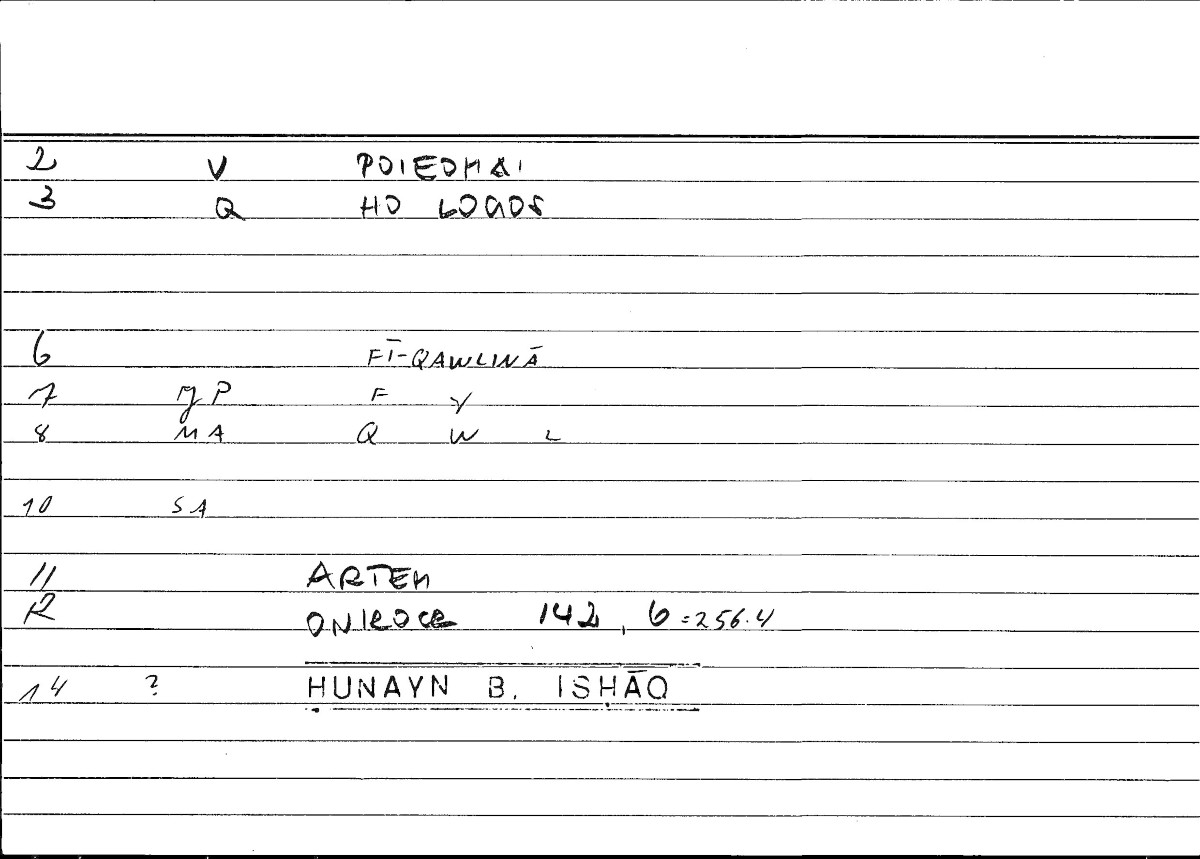 2 V POIEOMAI
3 Q HO LOGOS
6 FĪ-QAWLINĀ
7 P F Y
8 MA Q W L
10 SA
11 ARTEM
12 ONIROCR 142, 6 = 256.4
14 ? ḤUNAYN B. ISḤĀQ